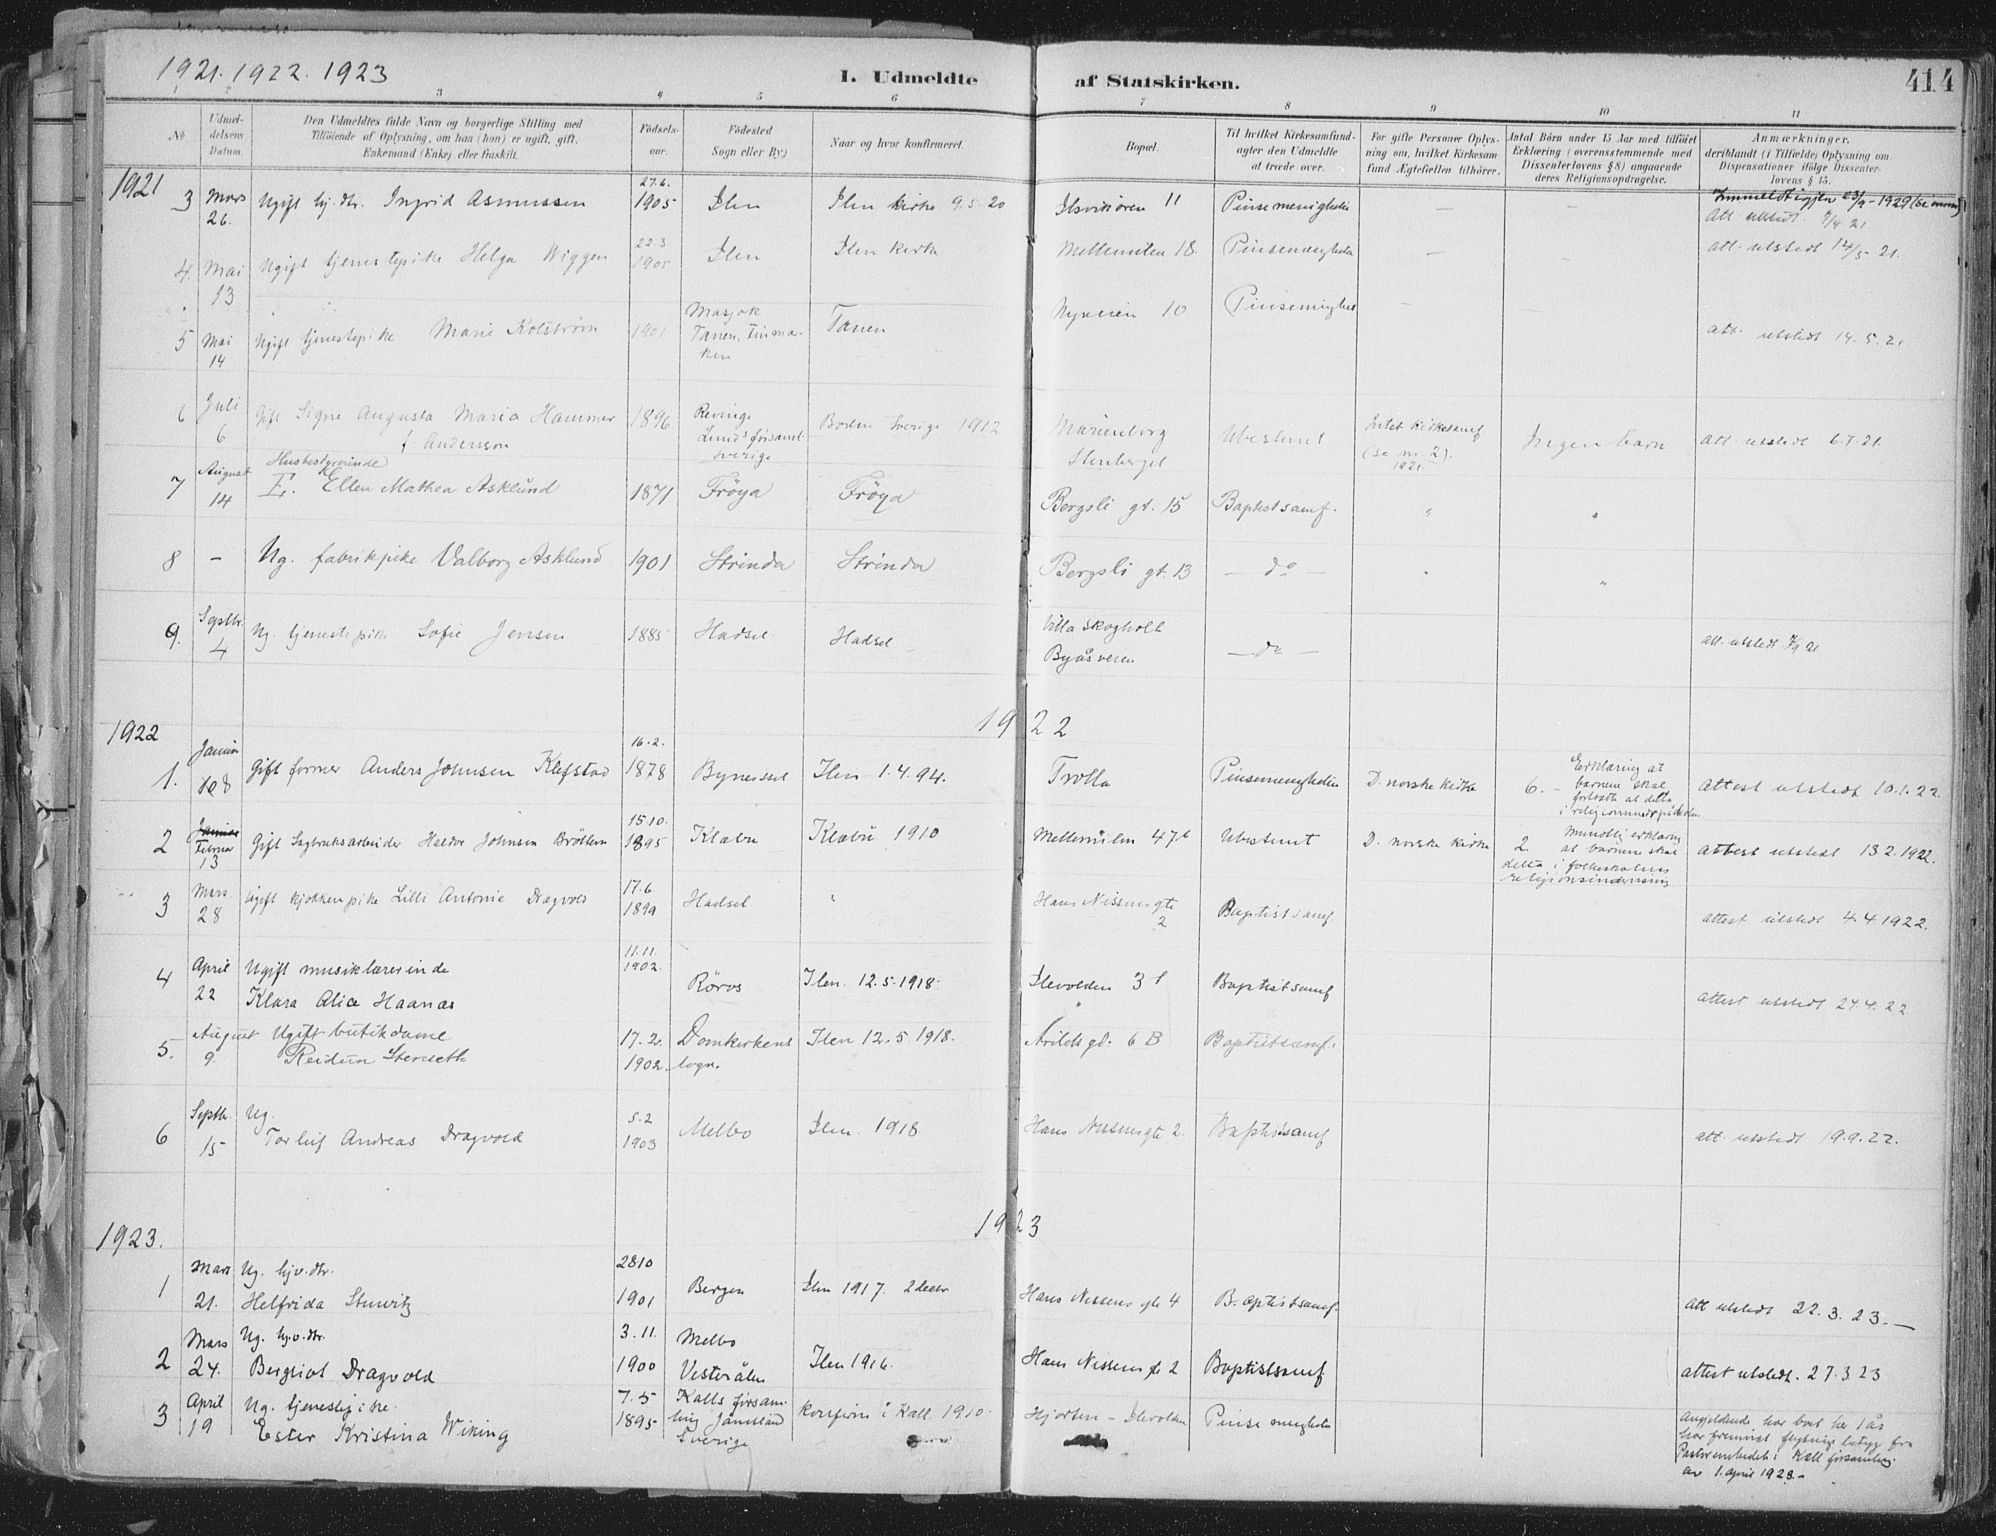 1921. 1922. 1923
I. Udmeldte af Statskirken.
414
1 2 3 4 5 6 7 8 9 10 11
№
Udmeldelsens Datum.
Den Udmeldtes fulde Navn og borgerlige Stilling med
Tilføiende af Oplysning, om han (hun) er ugift, gift,
Enkemand (Enke) eller fraskilt.
Fødselsaar.
Fødested
Sogn eller By)
Naar og hvor konfirmeret.
Bopæl.
Til hvilket Kirkesamfund
agter den Udmeldte
at træde over.
For gifte Personer Oplysning om, hvilket Kirkesamfund Ægtefællen tilhører.
Antal Børn under 15 Aar med tilføiet
Erklæring i overensstemmende med
Dissenterlovens § 8) angaaende
deres Religionsopdragelse.
Anmærkninger,
deriblandt (i Tilfælde) Oplysning om
Dispensationer ifølge Dissenterlovens § 15.
1921
3 Mars 26. Ugift hj. dtr. Ingrid Asmussen 27.6. 1905 Ilen Ilen kirke 9.5.20 Ilsvikøren 11 Pinsemenigheten — —
att. utstedt 7/4 21
4. Mai 13 Ugift tjenestepike Helga Wiggen 22.3. 1905 Ilen Ilen kirke 18. Pinsemenigheten — — att. utstedt 14/5 21.
5 Mai 14 Ugift tjenestepike Marie Kotstrøm 1901 Masjok Tanen, Finmarken Tanen Nyveien 10 — — att. utstedt 14.5.21
6 Juli 6 Gift Signe Augusta Maria Hammer f. Andersson 1896 Revinge Lunds församl. Sverige Boden Sverige 1912 Marienborg Ubestemt Intet kirkesamf (se nr 2). 1921. Ingen barn att. utstedt 6.7.21.
7 August 14 Husbestyrerinde E. Ellen Mathea Asklund 1871 Frøya Frøya Bergsli gt. 15 Baptistsamf. " "
8 — Ug. fabrikpike Valborg Asklund 1901 Strinda Strinda Bergsli gt. 13 — do — " "
9. Septbr. 4 Ug. tjenestepike Sofie Jensen 1885 Hadsel Hadsel Villa Skogholt Byåsveien — do — att. utstedt 4/9 21
1922
1922
1. Januar 108 Gift former Anders Johnsen Klefstad 16.2. 1878 Bynesset Ilen 1.4.94. Trolla Pinsemenigheten D. norske kirke 6. – Erklæring at barnene skal fortsætte at delta i attest utstedt 10.1.22.
2 Januar Februar 13 Gift Sagbruksarbeider Haldor Johnsen Brøttem 15.10. 1895 Klæbu Klæbu 1910 Mellemilen 47b Ubestemt D. norske kirke 2. Mundtlig erklæring at barnene skal delta i folkeskolens religionsundervisning attest utstedt 13 2.1922.
3 Mars 28 Ugift kjøkkenpike Lilli Antonie Dragvold 17.6 1899 Hadsel " Hans Nissensgte 2 Baptistsamf attest utstedt 4.4.1922.
4 April 22 Ugift musiklærerinde Klara Alice Haanæs 11.11. 1902. Røros Ilen. 12.5.1918. Ilevolden 31 Baptistsamf attest utstedt 24.4.22
5. August 9. Ugift butikdame Reidun Sterseth 17.2. 1902. Domkirkens sogn. Ilen 12.5.1918. Arilds gd. 6 B Baptistsamf.
6 Septbr. 15 Ug. Torleif Andreas Dragvold 5.2 1903 Melbo Ilen. 1918. Hans Nissensgte 2. Baptistsamf att. utstedt 19.9.22.
1923.
1923
1 Mars 21. Ug. hjv. dtr. Helfrida Stuwitz 2810 1901 Bergen Ilen 1917. Hans Nissens gte 4 B. aptistsamf. att utstedt 22.3.23.—
2 Mars 24. Ug. hj.v. dtr. Bergliot Dragvold 3.11. 1900 Melbo Vesterålen Ilen 1916. Hans Nissens gt 2 Baptistsamf. attest utstedt. 27.3.23
3 April 19 Ug. tjenestepike. Ester Kristina Wiking 7.5 1895 Kalls församling Jämtland Sverige konfirm i Kall. 1910. Hjorten – Ilevolden Pinsemenigheten
Angjeldende har bott her 1 år
har fremvist flytnings betyg fra
Pastorsembedet i Kall församling
av 1. april 1923.—